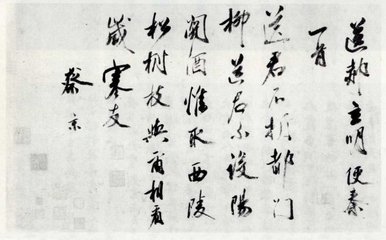 送郝玄明使秦
一首
送君不折都门
柳送君不设阳
关酒惟取西陵
松树枝与尔相看
岁寒友
蔡京